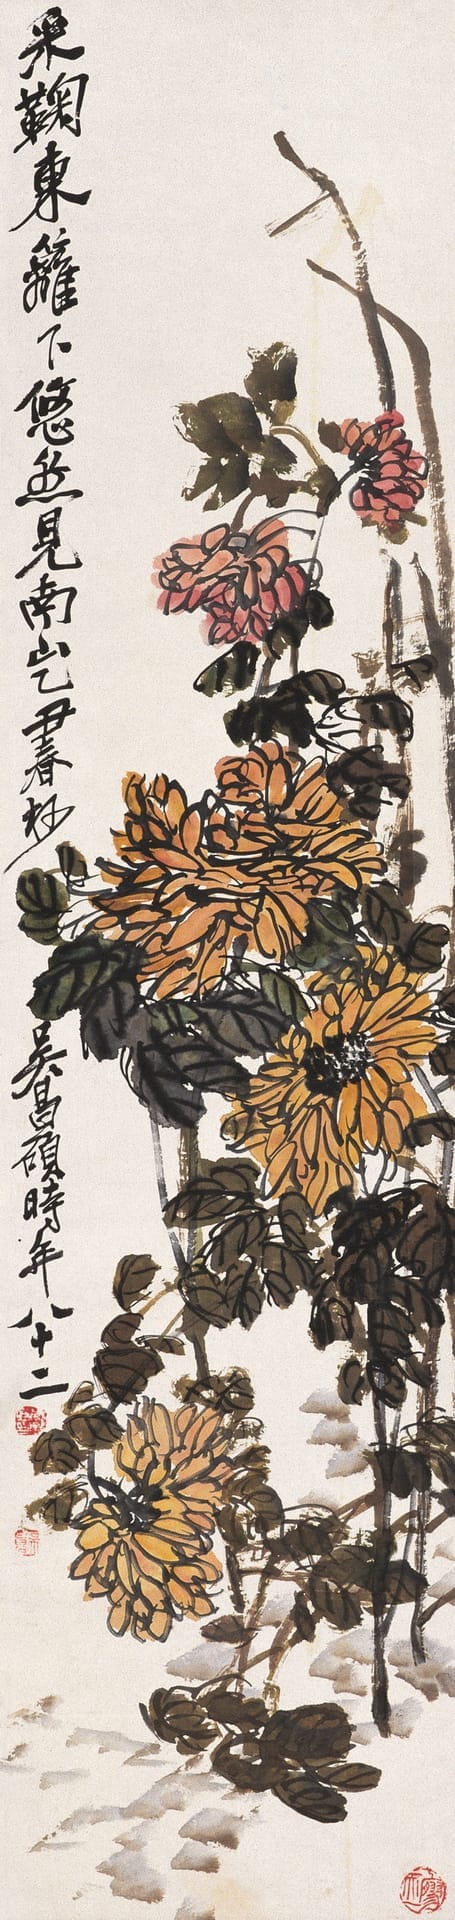 采鞠東籬下悠然見南山乙丑春杪
吳昌碩時年八十二